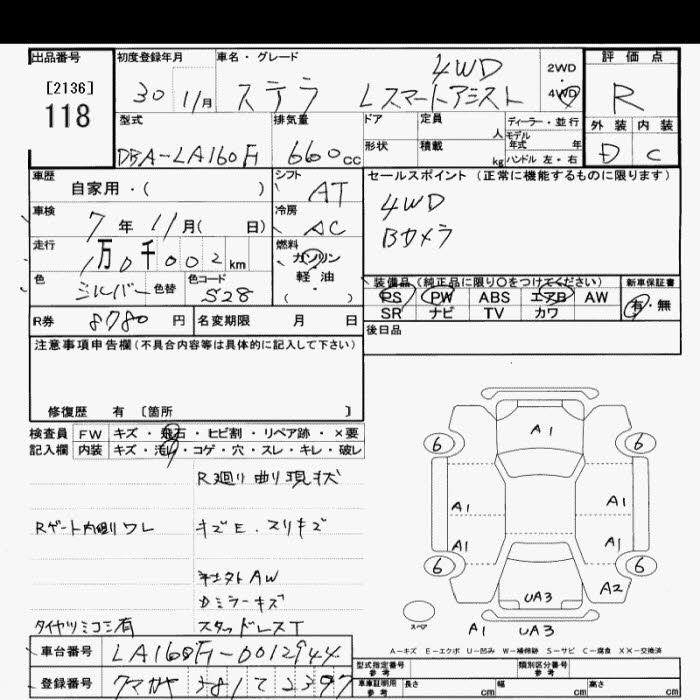 出品番号
[2136]
118
初度登録年月
30 11月
車名・グレード
4WD
ステラ Lスマートアシスト
2WD
・
4WD
評価点
R
外装 内装
D C
型式
DBA-LA160F
排気量
660cc
ドア
形状
定員 人
積載 kg
ディーラー・並行
モデル年式 年
ハンドル 左・右
車歴
自家用・( )
シフト
AT
車検
7年11月( 日)
冷房
AC
走行
1万0千002km
燃料
ガソリン
軽・油
( )
色
シルバー 色替
色コード
S28
セールスポイント (正常に機能するものに限ります)
4WD
Bカメラ
装備品(純正品に限り○をつけてください)
PS PW ABS エアB AW
SR ナビ TV カワ
新車保証書
有・無
R券 8780円
名変期限 月 日
後日品
注意事項申告欄(不具合内容等は具体的に記入して下さい)
修復歴 有 [箇所 ]
検査員 FW キズ・飛石・ヒビ割・リペア跡・×要
記入欄 内装 キズ・汚れ・コゲ・穴・スレ・キレ・破レ
R廻り曲り現状
Rゲート内廻りワレ
キズE.スリキズ
社外AW
カミラーキズ
タイヤツミコミ有
スタッドレスT
A1
6 6
A1 A1
A1 A1
6 6
UA3 A2
スペア
A1 UA3
A-キズ E-エクボ U-凹み W-補修跡 S-サビ C-腐食 XX-交換済
車台番号 LA160F-0012944
登録番号
型式指定番号
参考
類別区分番号
参考
車庫証明用
参考
長さ cm 幅 cm 高さ cm